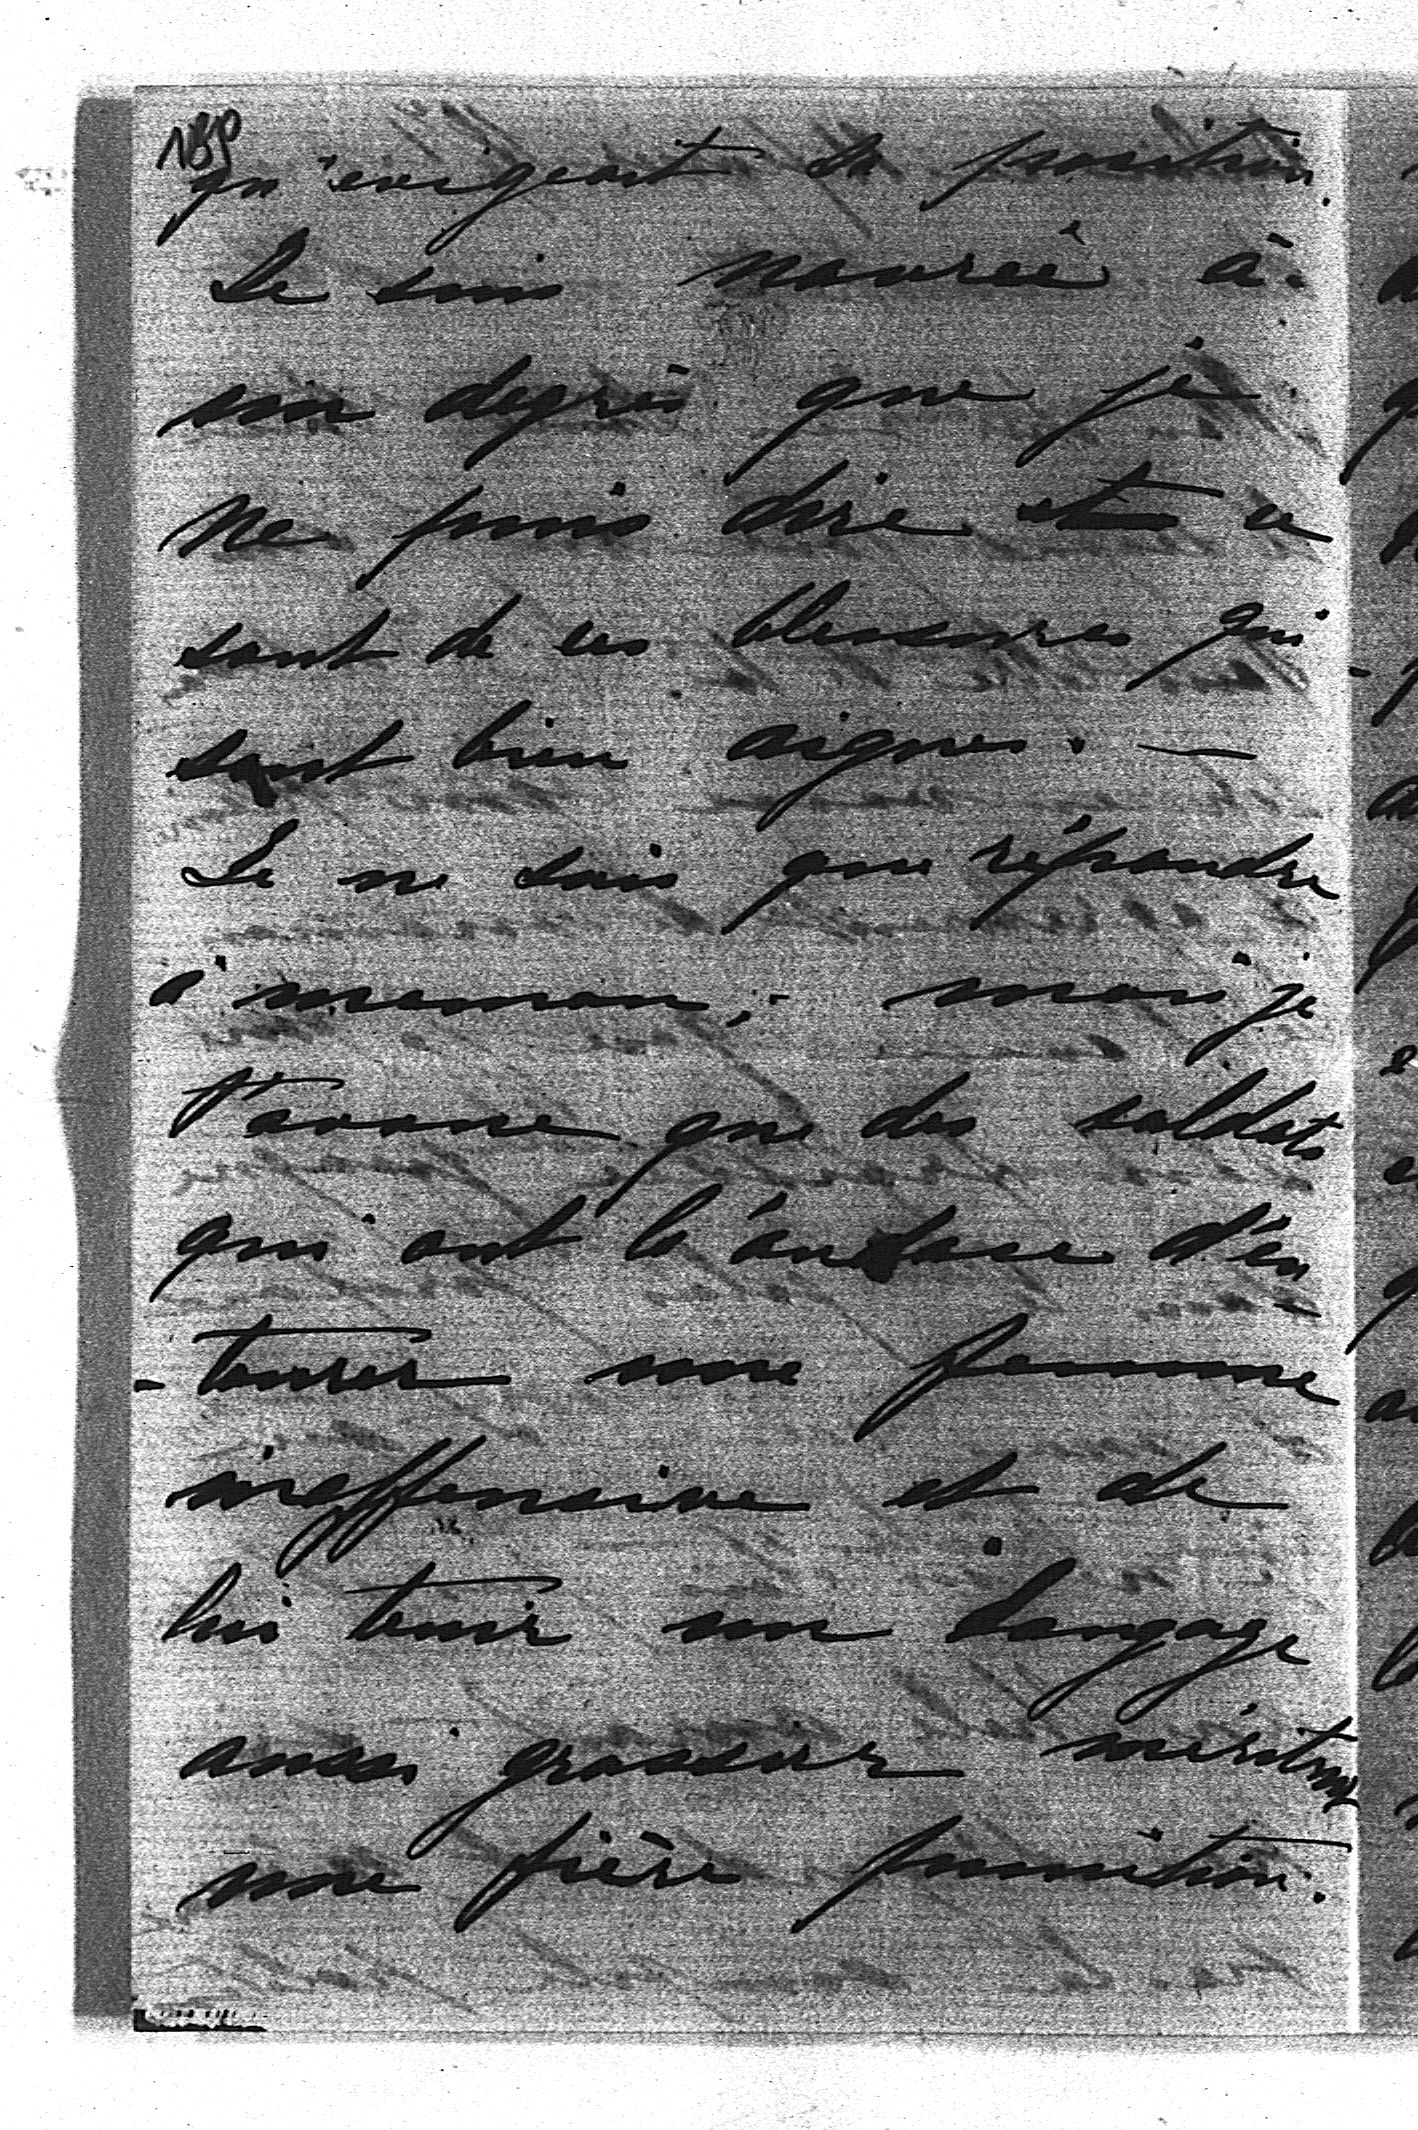 qu'exigeait la position.
Je suis navrée à
un degrès que je
ne puis dire et ce
sont de ces blessures qui
sont bien aigues. —
Je ne sais que répondre
à maman, - mais je
t'avoue que des soldats
qui ont l'audace d'en
- tourer une femme
ineffensive et de
lui tenir un langage
aussi grossier mérite
une fière punition.